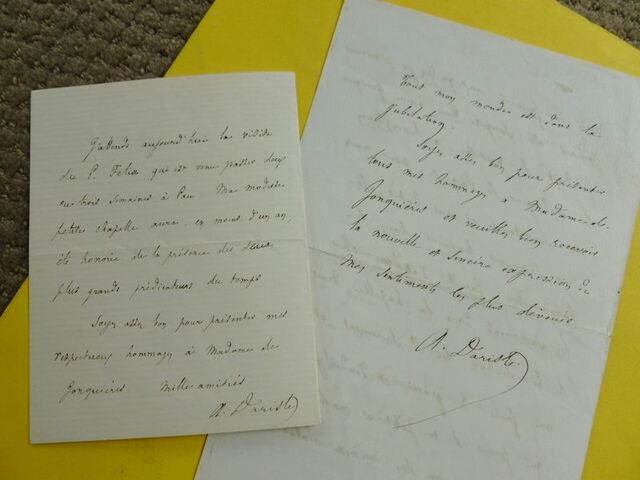 J'attends aujourd'hui la visite
du P. Felix qui est venu passer deux
ou trois semaines à Pau. Ma modeste
petite chapelle aura, en moins d'un an,
été honorée de la présence des deux
plus grands prédicateurs du temps
Soyez assez bon pour présenter mes
respectueux hommages à Madame de
Jonquières Mille amitiés
A. Dariste
Tout mon monde est dans la
jubilation.
Soyez assez bon pour présenter
tous mes hommages à Madame de
Jonquières et veuillez bien recevoir
la nouvelle et sincère expression de
mes sentiments les plus dévoués
A. Dariste